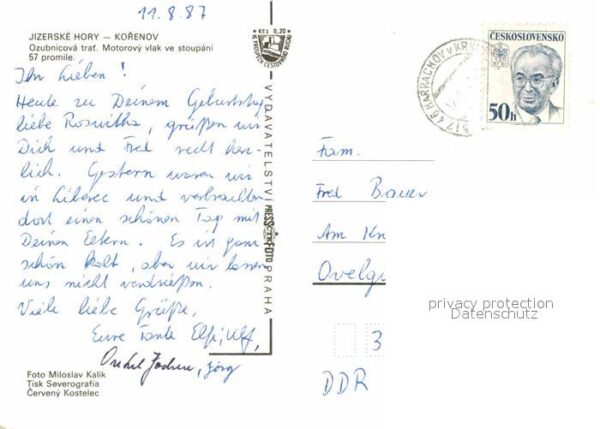 11.8.87
JIZERSKÉ HORY – KOŘENOV
Ozubnicová trať. Motorový vlak ve stoupání
57 promile.
Ihr Lieben!
Heute zu Deinem Geburtstag,
liebe Roswitha, grüßen wir
Dich und Fred recht herz-
lich. Gestern waren wir
in Liberec und verbrachten
dort einen schönen Tag mit
Deinen Eltern. Es ist ganz
schön kalt, aber wir lassen
uns nicht verdrießen.
Viele liebe Grüße,
Eure Tante Elfi, Ulf,
Onkel Jochen, Jörg
Foto Miloslav Kalík
Tisk Severografia
Červený Kostelec
Kčs 0,20
VYDAVATELSTVÍ PRESSFOTO PRAHA
ČESKOSLOVENSKO
50h
512 46 HARRACHOV V KRK
Fam.
Fred Bauer
Am Kn
Ovelg
privacy protection
Datenschutz
3
DDR